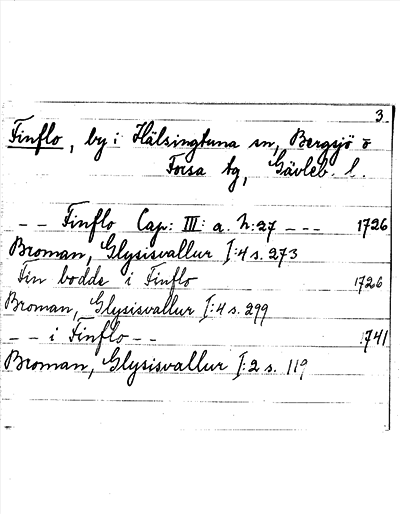 3.
Finflo, by i Hälsingtuna sn, Bergsjö o
Forsa tg, Gävleb. l.
– – Finflo Cap: III: a. N:27 – – – 1726
Broman, Glysisvallur I:4 s. 273
Fin bodde i Finflo 1726
Broman, Glysisvallur I:4 s. 299
– – i Finflo – – 1741
Broman, Glysisvallur I:2 s. 119